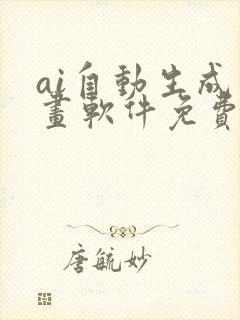 ai自動生成
畫軟件免費
唐毓妙